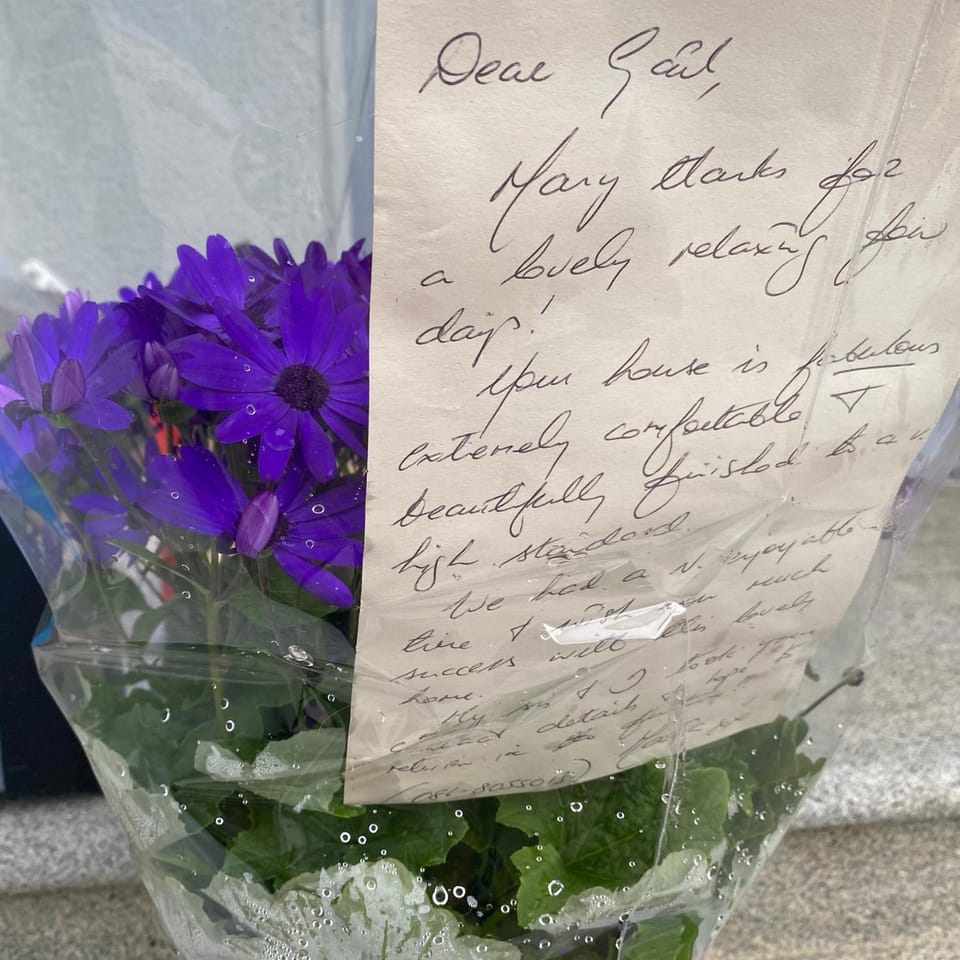 Dear Gail,
Many thanks for
a lovely relaxing few
days!
Your house is fabulous
extremely comfortable +
beautifully finished to a v.
high standard.
We had a v. enjoyable
time + wish you much
success with this lovely
home.
My sis + I took your
contact details + hope to
return in the